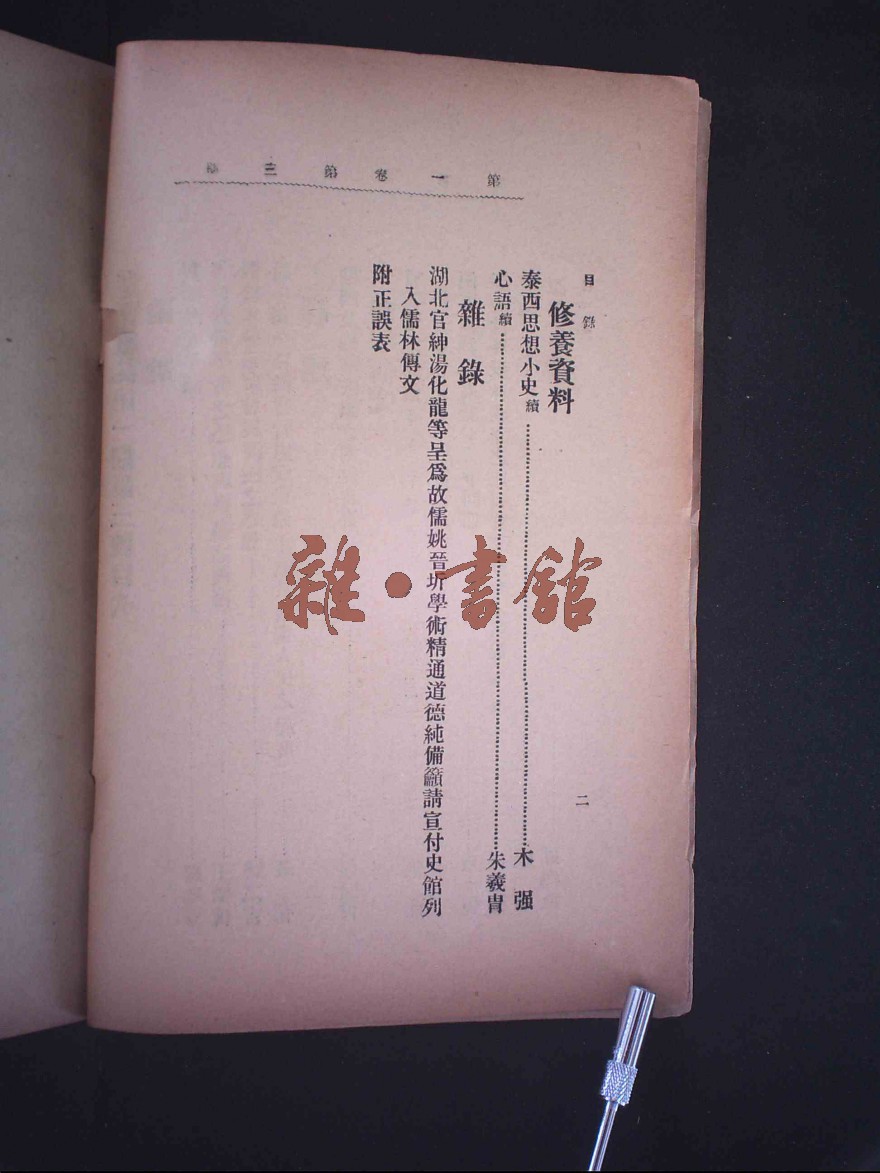 第一卷第三
目錄
修養資料
泰西思想小史續 木强
心語續 朱羲冑
雜錄
湖北官紳湯化龍等呈爲故儒姚晉圻學術精通道德純備籲請宣付史館列
入儒林傳文
附正誤表
二
雜·書館